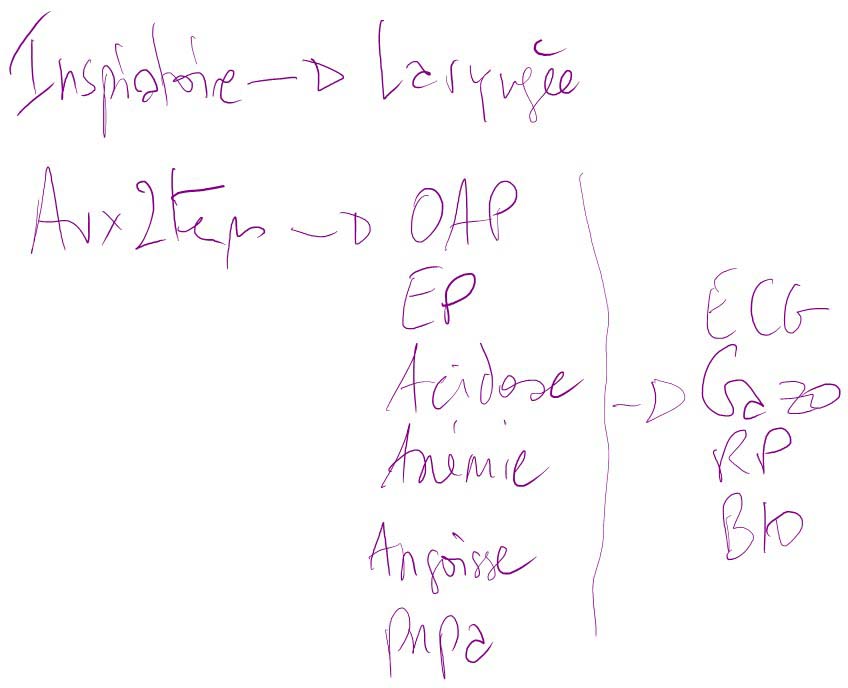 Inspiratoire → Laryngée
Aux 2 temps → OAP
EP
Acidose
Anémie
Angoisse
PNPA
→ ECG
Gazo
RP
BIO